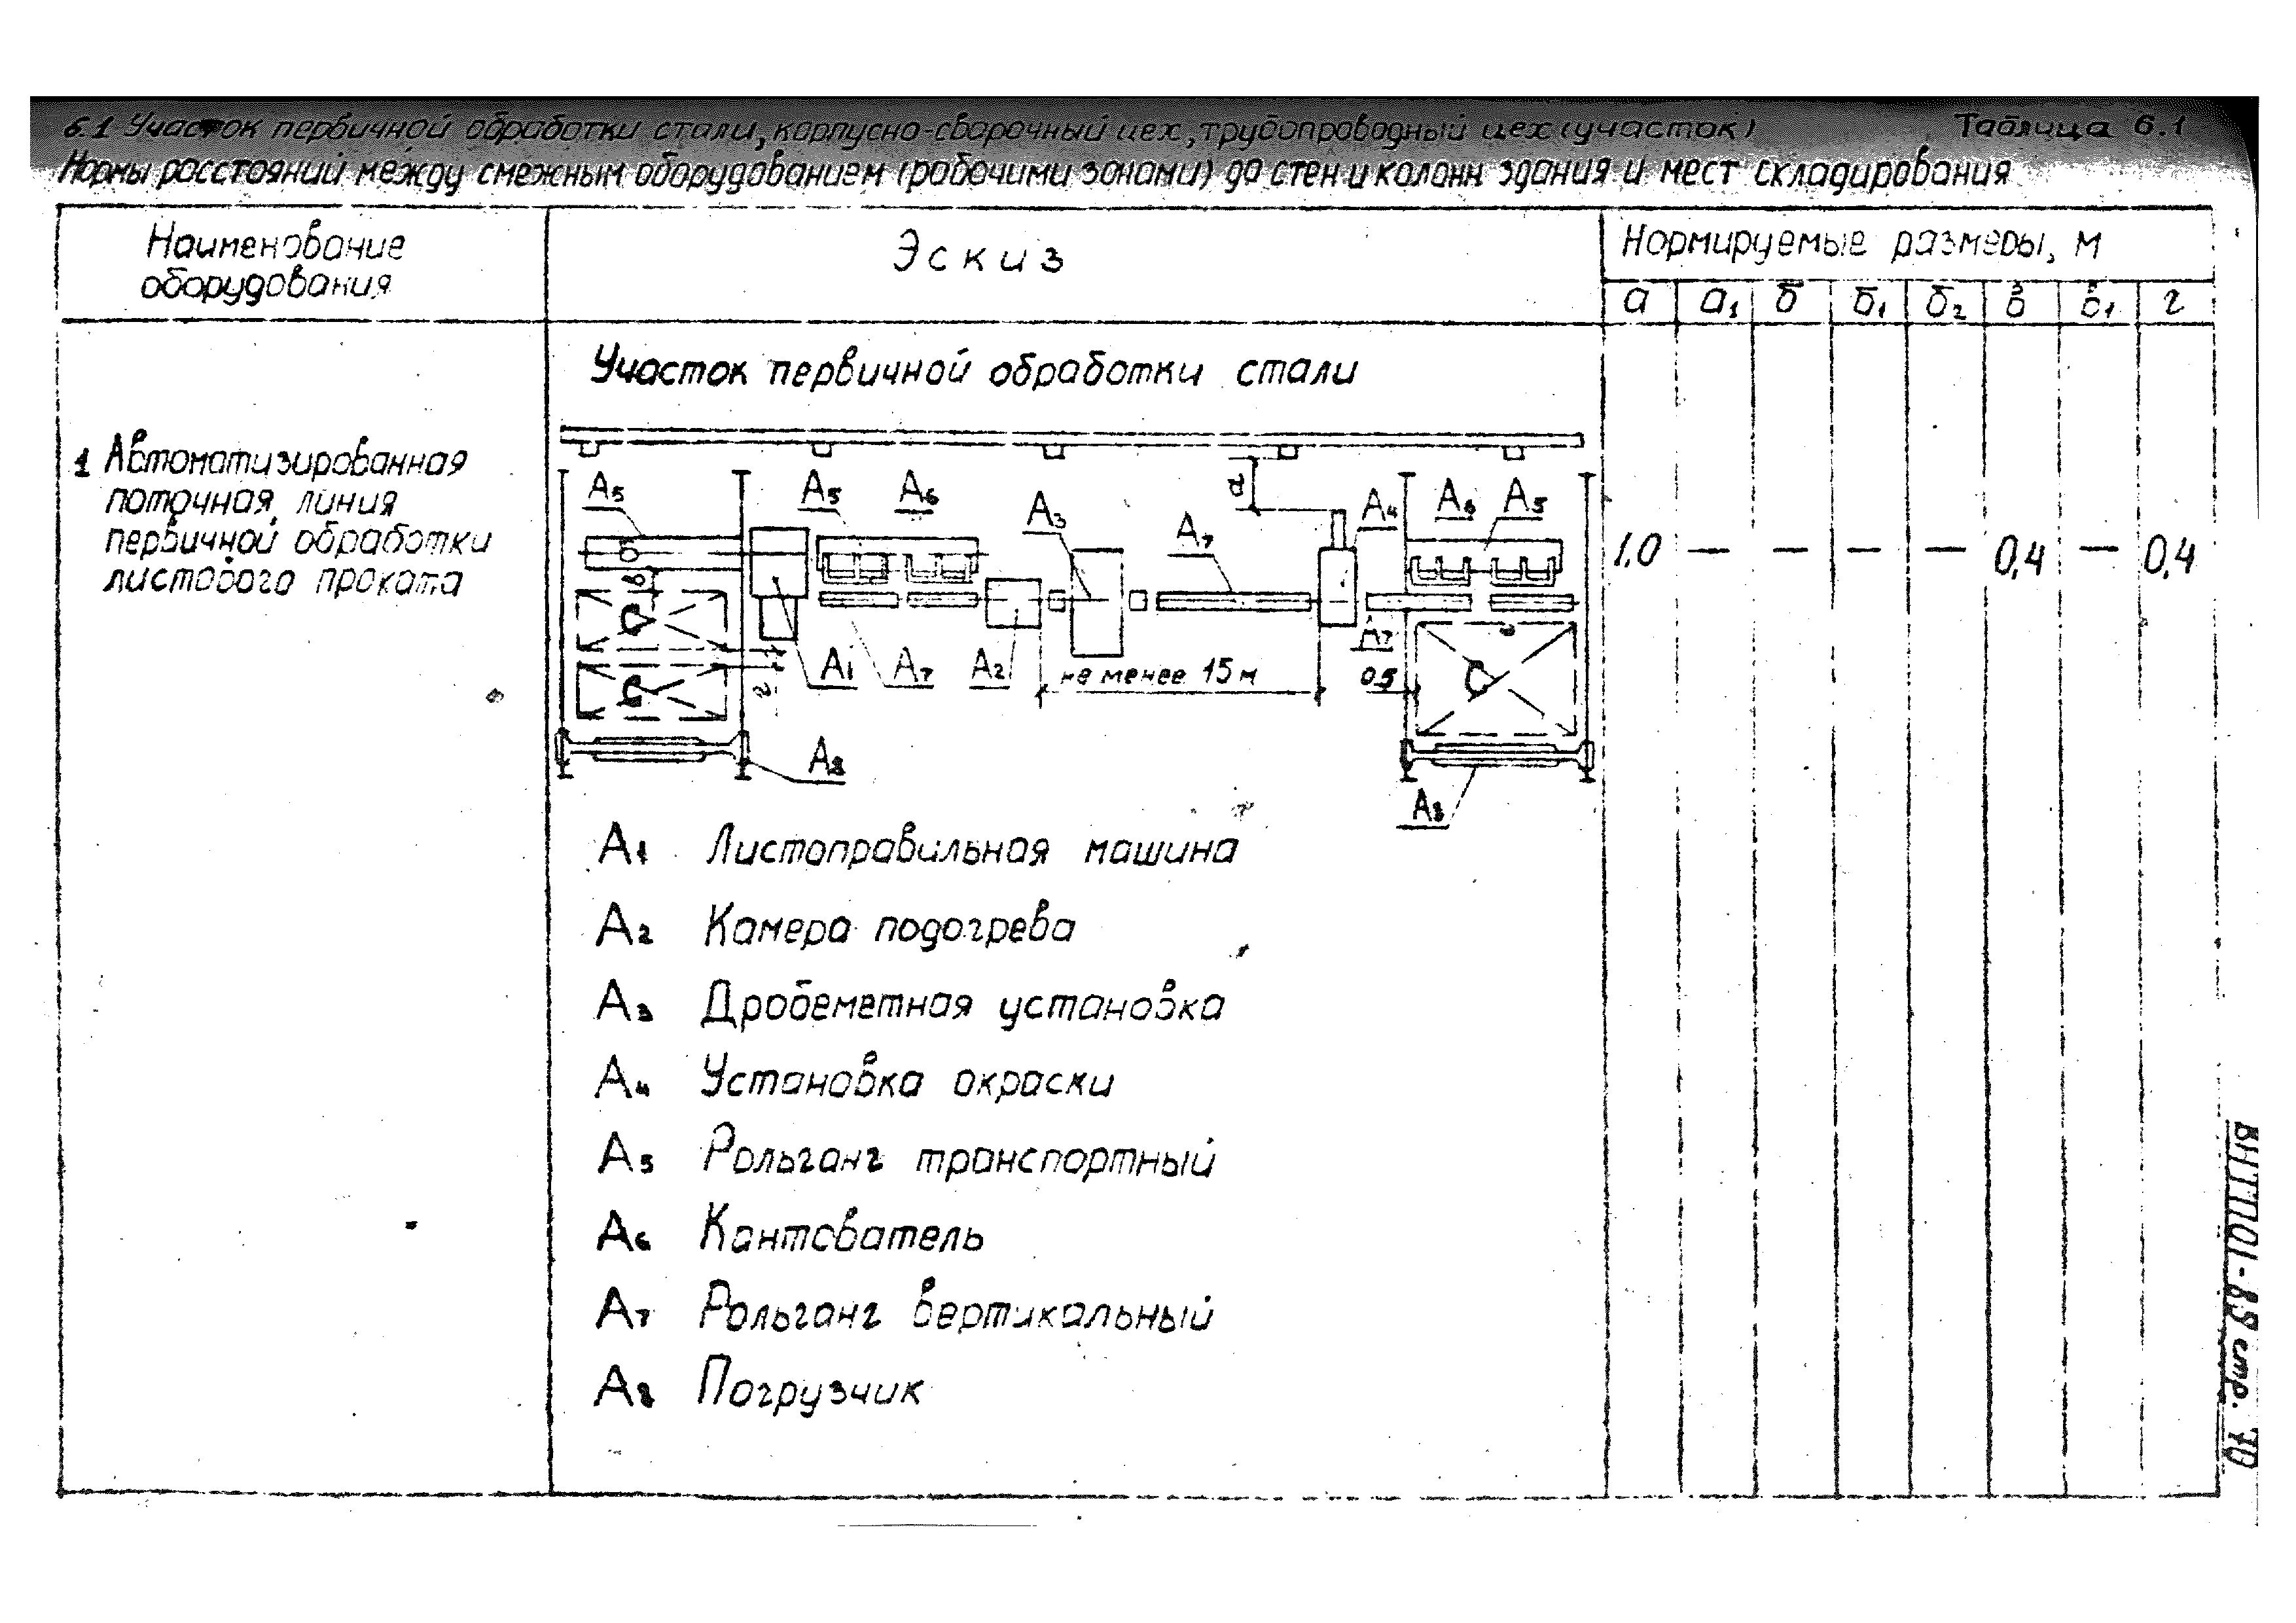 6.1 Участок первичной обработки стали, корпусно-сборочный цех, трубопроводный цех (участок) Таблица 6.1
Нормы расстояний между смежным оборудованием (рабочими зонами) до стен и колонн здания и мест складирования
Наименование оборудования
Эскиз
Нормируемые размеры, м
а а1 б б1 б2 в в1 г
Участок первичной обработки стали
1 Автоматизированная
поточная линия
первичной обработки
листового проката
1,0 — — — — 0,4 — 0,4
А5 А5 А6 А3 А7 а А4 А6 А5
в
С
С
г
А1 А7 А2 не менее 15 м А7 0,5 С
в
А8
А8
А1 Листоправильная машина
А2 Камера подогрева
А3 Дробеметная установка
А4 Установка окраски
А5 Рольганг транспортный
А6 Кантователь
А7 Рольганг вертикальный
А8 Погрузчик
ВНТП01-85 стр. 70